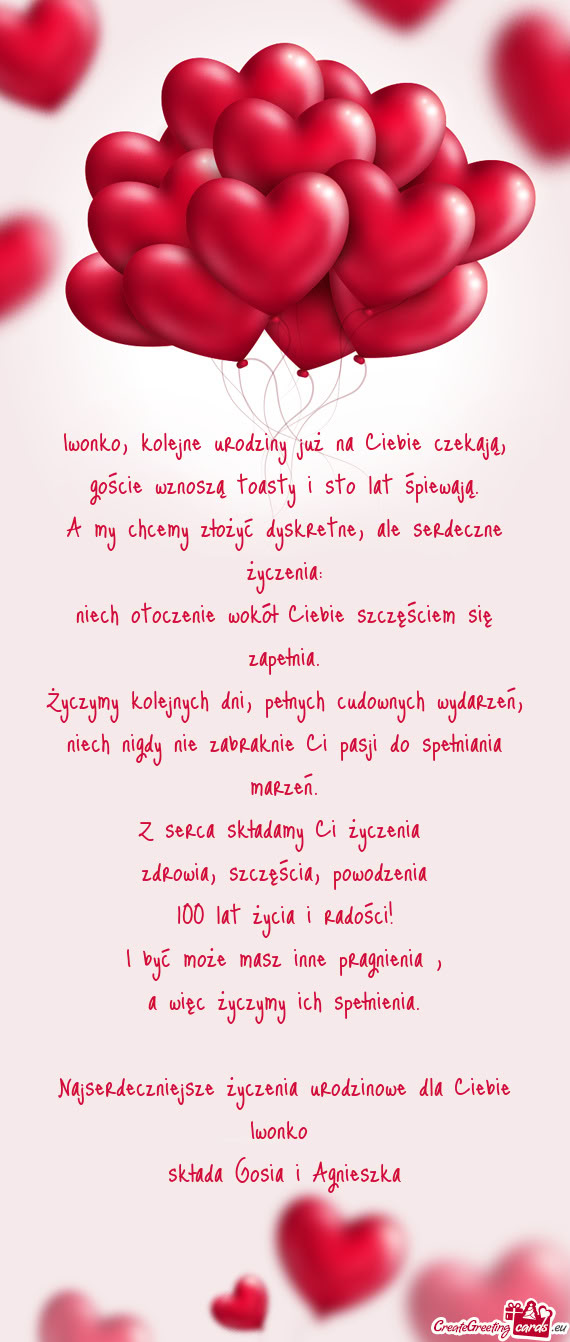 Iwonko, kolejne urodziny już na Ciebie czekają,
goście wznoszą toasty i sto lat śpiewają.
A my chcemy złożyć dyskretne, ale serdeczne
życzenia:
niech otoczenie wokół Ciebie szczęściem się
zapełnia.
Życzymy kolejnych dni, pełnych cudownych wydarzeń,
niech nigdy nie zabraknie Ci pasji do spełniania
marzeń.
Z serca składamy Ci życzenia
zdrowia, szczęścia, powodzenia
100 lat życia i radości!
I być może masz inne pragnienia ,
a więc życzymy ich spełnienia.
Najserdeczniejsze życzenia urodzinowe dla Ciebie
Iwonko
składa Gosia i Agnieszka
CreateGreetingcards.eu